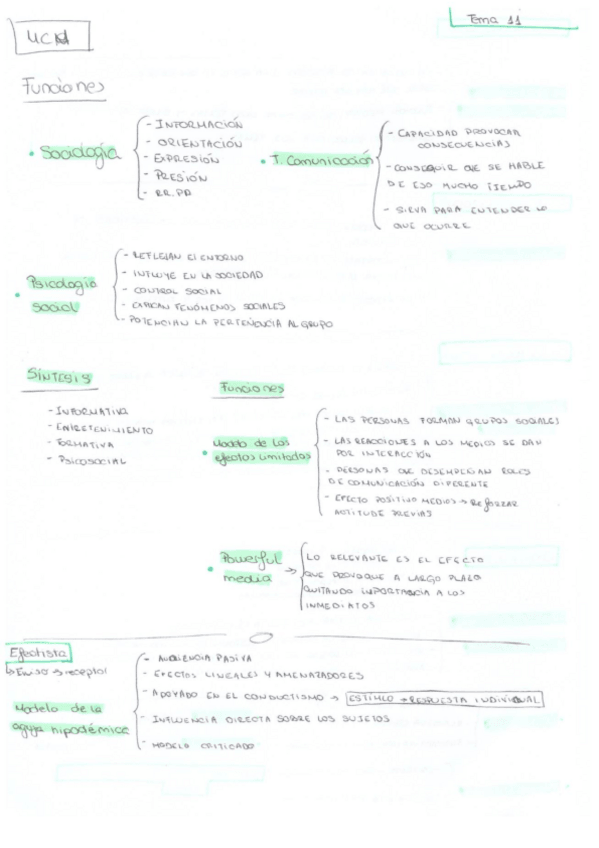 Tema 11
UCM
Funciones
• Sociología
- INFORMACIÓN
- ORIENTACIÓN
- EXPRESIÓN
- PRESIÓN
- RR.PP
• T. Comunicación
- CAPACIDAD PROVOCAR
CONSECUENCIAS
- CONSEGUIR QUE SE HABLE
DE ESO MUCHO TIEMPO
- SIRVA PARA ENTENDER LO
QUE OCURRE
• Psicología
social
- REFLEJAN El ENTORNO
- INFLUYE EN LA SOCIEDAD
- CONTROL SOCIAL
- EXPLICAN FENÓMENOS SOCIALES
- POTENCIAN LA PERTENENCIA AL GRUPO
SÍNTESIS
- INFORMATIVA
- ENTRETENIMIENTO
- FORMATIVA
- PSICOSOCIAL
Funciones
• Modelo de los
efectos limitados
- LAS PERSONAS FORMAN GRUPOS SOCIALES
- LAS REACCIONES A LOS MEDIOS SE DAN
POR INTERACCIÓN
- PERSONAS QUE DESEMPEÑAN ROLES
DE COMUNICACIÓN DIFERENTE
- EFECTO POSITIVO MEDIOS → REFORZAR
ACTITUDES PREVIAS
• Powerful
media
→ LO RELEVANTE ES EL EFECTO
QUE PROVOQUE A LARGO PLAZO
QUITANDO IMPORTANCIA A LOS
INMEDIATOS
Efectista
↳ Emisor → receptor
Modelo de la
aguja hipodérmica
- AUDIENCIA PASIVA
- EFECTOS LINEALES Y AMENAZADORES
- APOYADO EN EL CONDUCTISMO → ESTÍMULO → RESPUESTA INDIVIDUAL
- INFLUENCIA DIRECTA SOBRE LOS SUJETOS
- MODELO CRITICADO